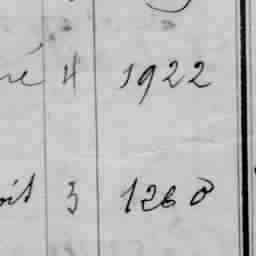 é 4 1922
oit 3 1260